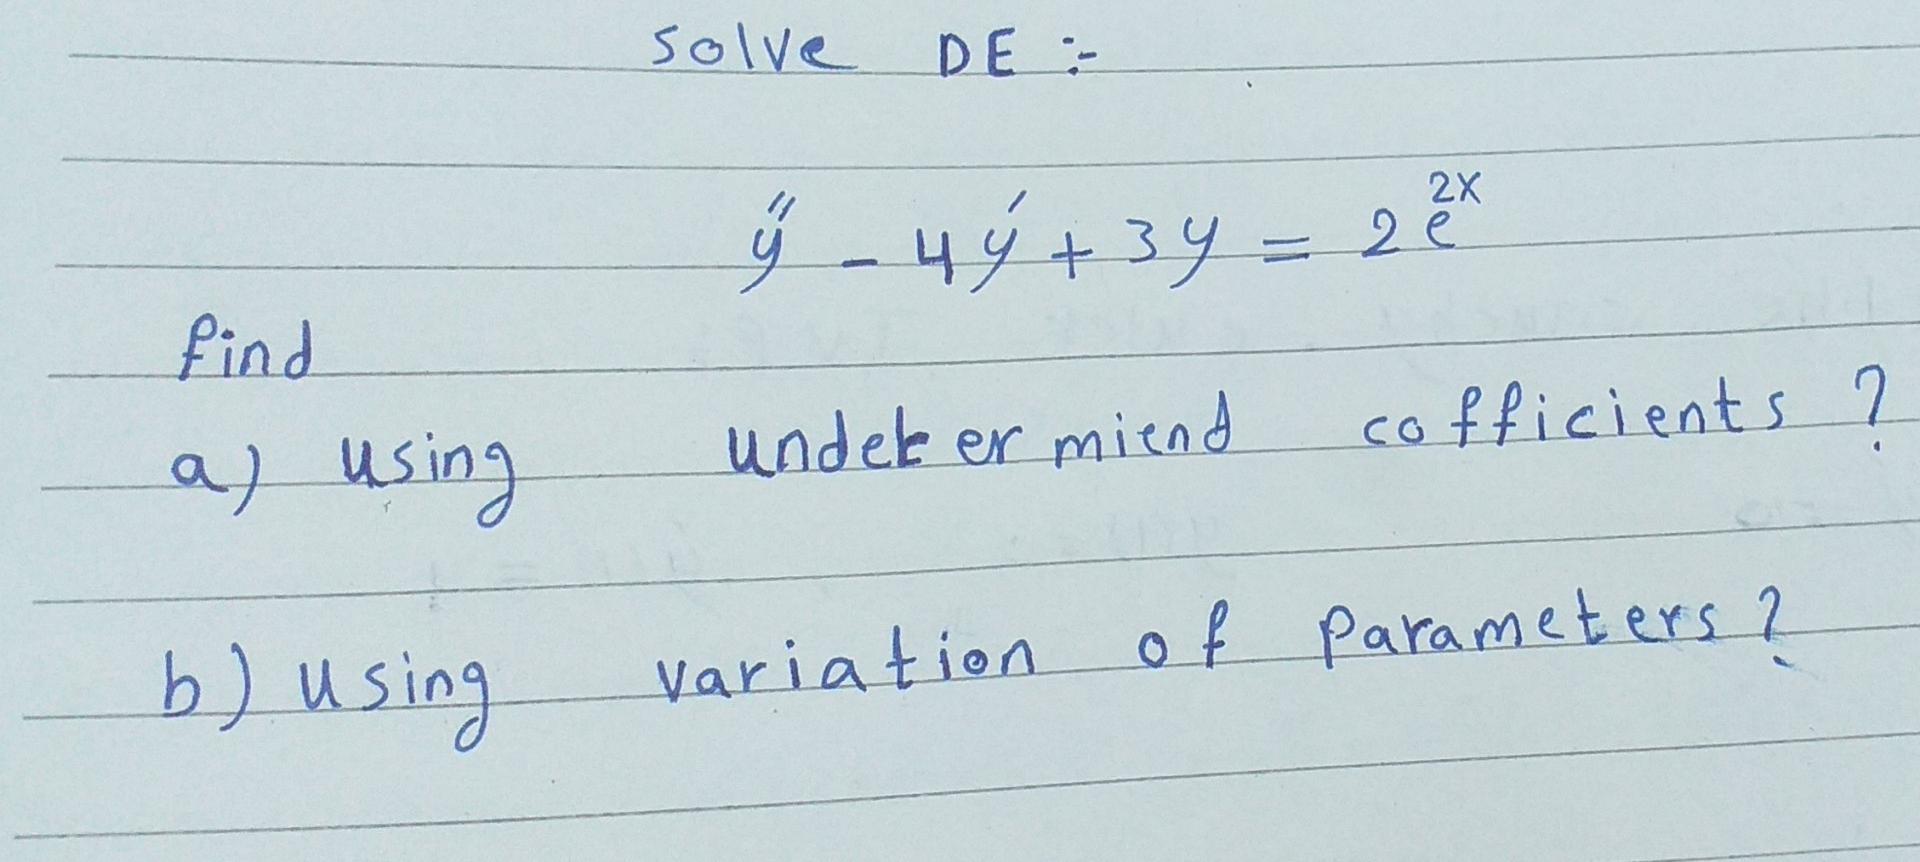 solve DE :-
y'' - 4y' + 3y = 2e^2x
find
a) using undetermiend cofficients ?
b) using variation of parameters ?